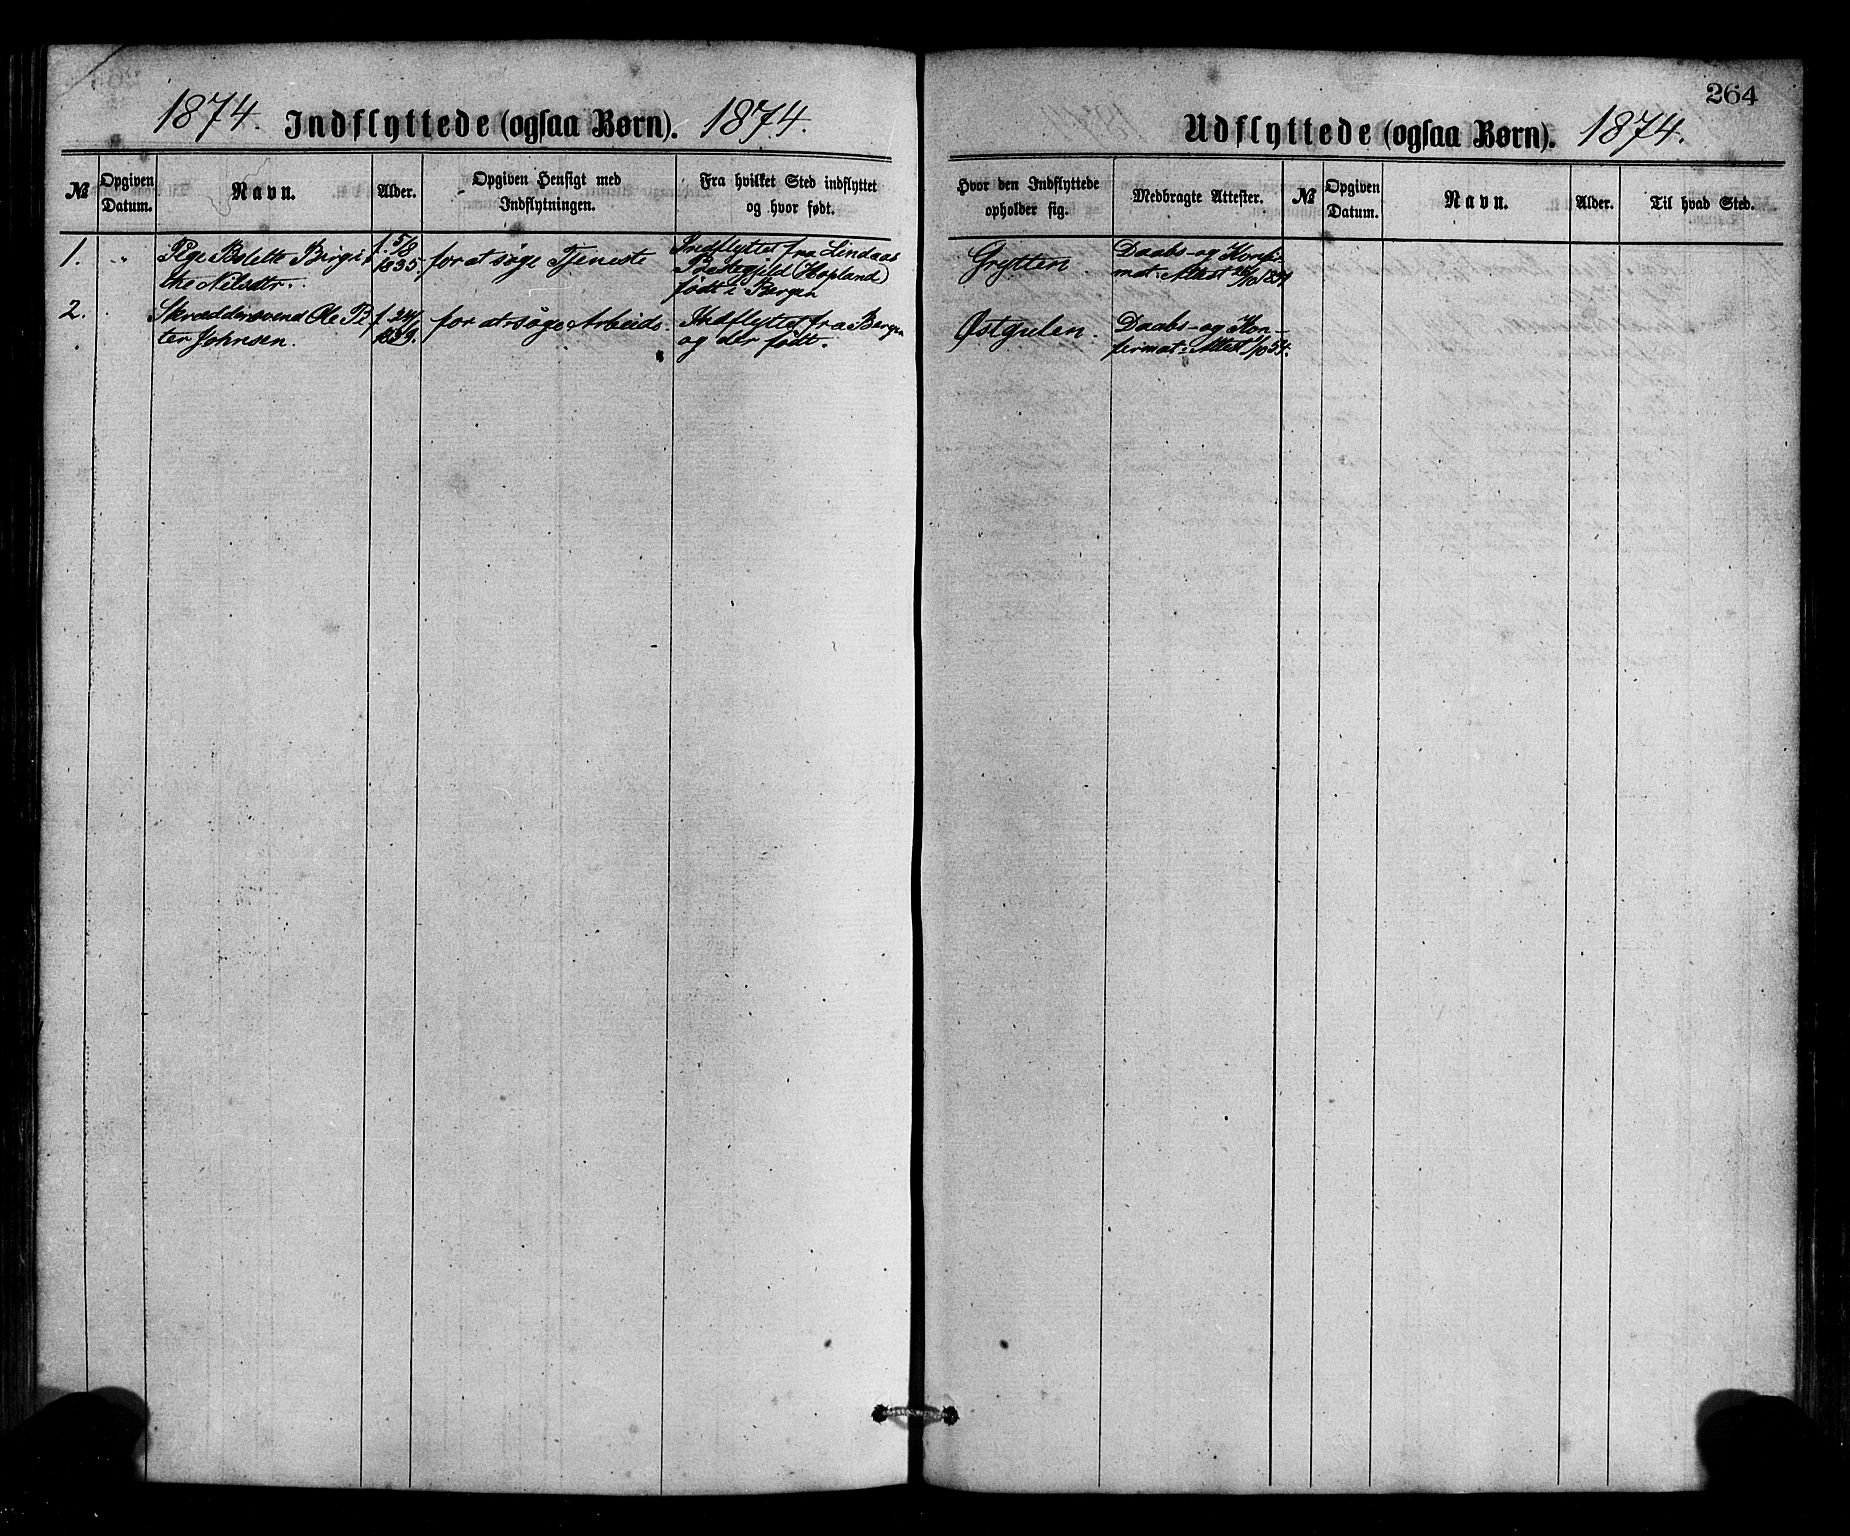 264
1874. Indflyttede (ogsaa Børn). 1874.
Udflyttede (ogsaa Børn). 1874.
№ Opgiven Datum. Navn. Alder. Opgiven Hensigt med Indflytningen. Fra hvilket Sted indflyttet og hvor født.
Hvor den Indflyttede opholder sig. Medbragte Attester. № Opgiven Datum. Navn. Alder. Til hvad Sted.
1. " Pige Bolette Birgit f. 5/8 for at søge Tjeneste Indflyttet fra Lindaas Grytten. Daabs- og Konfir-
the Nilsdtr. 1835, Præstegjeld (Hopland) mat: Attest
født i Bergen
2. Skræddersvend Ole Pe f. for at søge Arbeide. Indflyttet fra Bergen Østgulen. Daabs- og Kon-
ter Johnsen. og der født. firmat: Attest